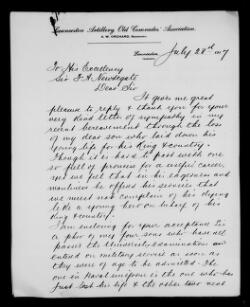 Launceston Artillery Old Comrades' Association.
A. W. ORCHARD,
Launceston, July 28th 1917
To His Excellency
Sir F. A. Newdegate
Dear Sir
It gives me great
pleasure to reply & thank you for your
very kind letter of sympathy in my
recent bereavement through the loss
of my dear son who laid down his
young life for his King & country.
Though it is hard to part with one
so full of promise for a useful career,
yet we feel that in his eagerness and
manliness he offered his services that
we must not complain of his dying
like a young hero on behalf of his
King & country.
I am enclosing for your acceptance Sir
a photo of my four sons who have all
passed the University examination and
entered on military service as soon as
they were of age to be admitted. The
one in Naval uniform is the one who has
just lost his life & the other two are